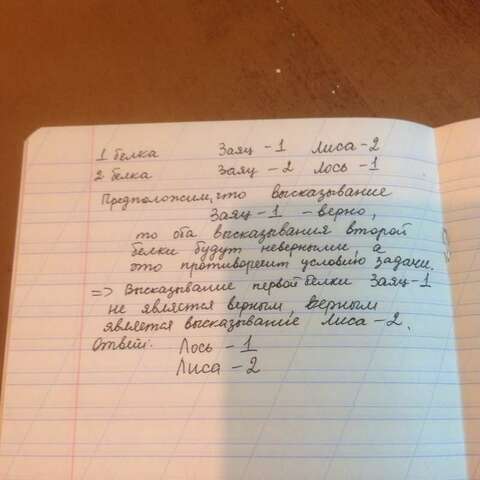 1 белка Заяц - 1 Лиса - 2
2 белка Заяц - 2 Лось - 1
Предположим, что высказывание
Заяц - 1 - верно,
то оба высказывания второй
белки будут неверными, а
это противоречит условию задачи.
=> Высказывание первой белки Заяц - 1
не является верным, верным
является высказывание Лиса - 2.
Ответ: Лось - 1
Лиса - 2